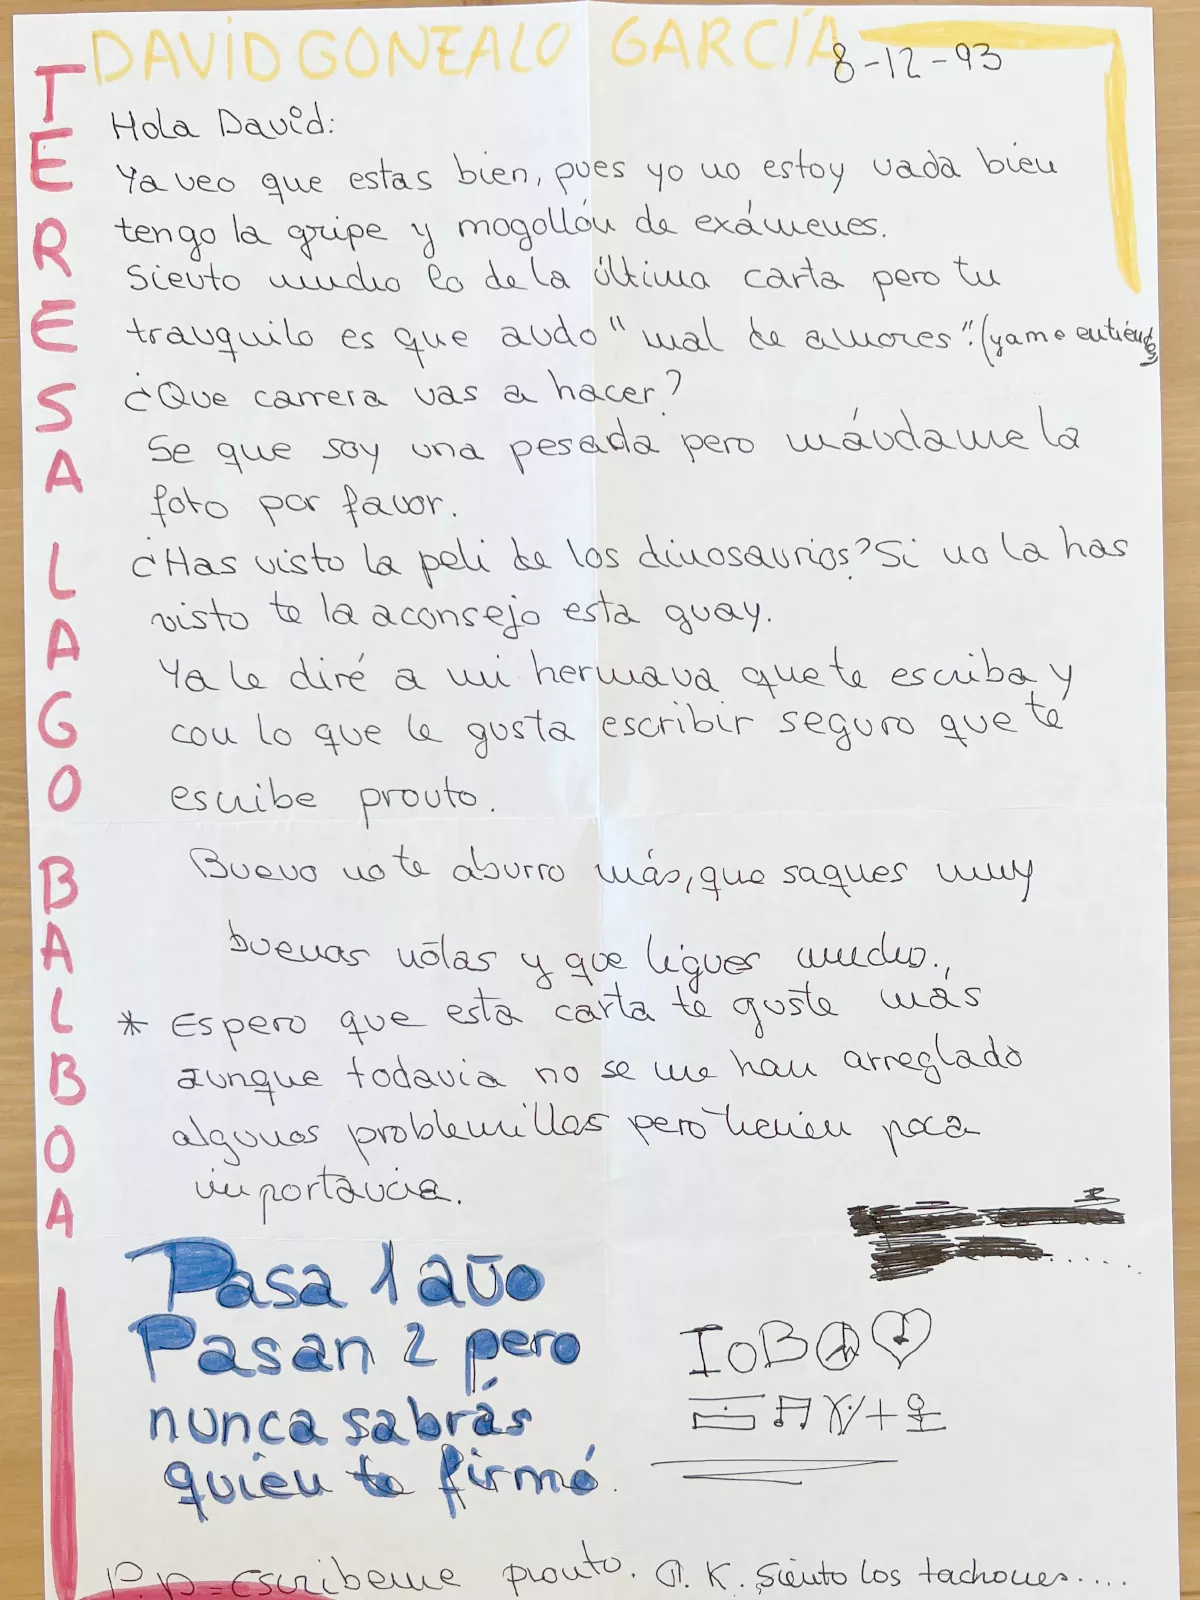 DAVID GONZALO GARCÍA
8-12-93
TERESA LAGO BALBOA
Hola David:
Ya veo que estas bien, pues yo no estoy nada bien
tengo la gripe y mogollón de exámenes.
Siento mucho lo de la última carta pero tu
tranquilo es que ando "mal de amores". (ya me entiendes
¿Que carrera vas a hacer?
Se que soy una pesada pero mándame la
foto por favor.
¿Has visto la peli de los dinosaurios? Si no la has
visto te la aconsejo esta guay.
Ya le diré a mi hermana que te escriba y
con lo que le gusta escribir seguro que te
escribe pronto.
Bueno no te aburro más, que saques muy
buenas notas y que ligues mucho.,
* Espero que esta carta te guste más
aunque todavia no se me han arreglado
algunos problemillas pero tienen poca
importancia.
Pasa 1 año
Pasan 2 pero
nunca sabrás
quien te firmó.
P.D= Escribeme pronto. O.K. Siento los tachones....